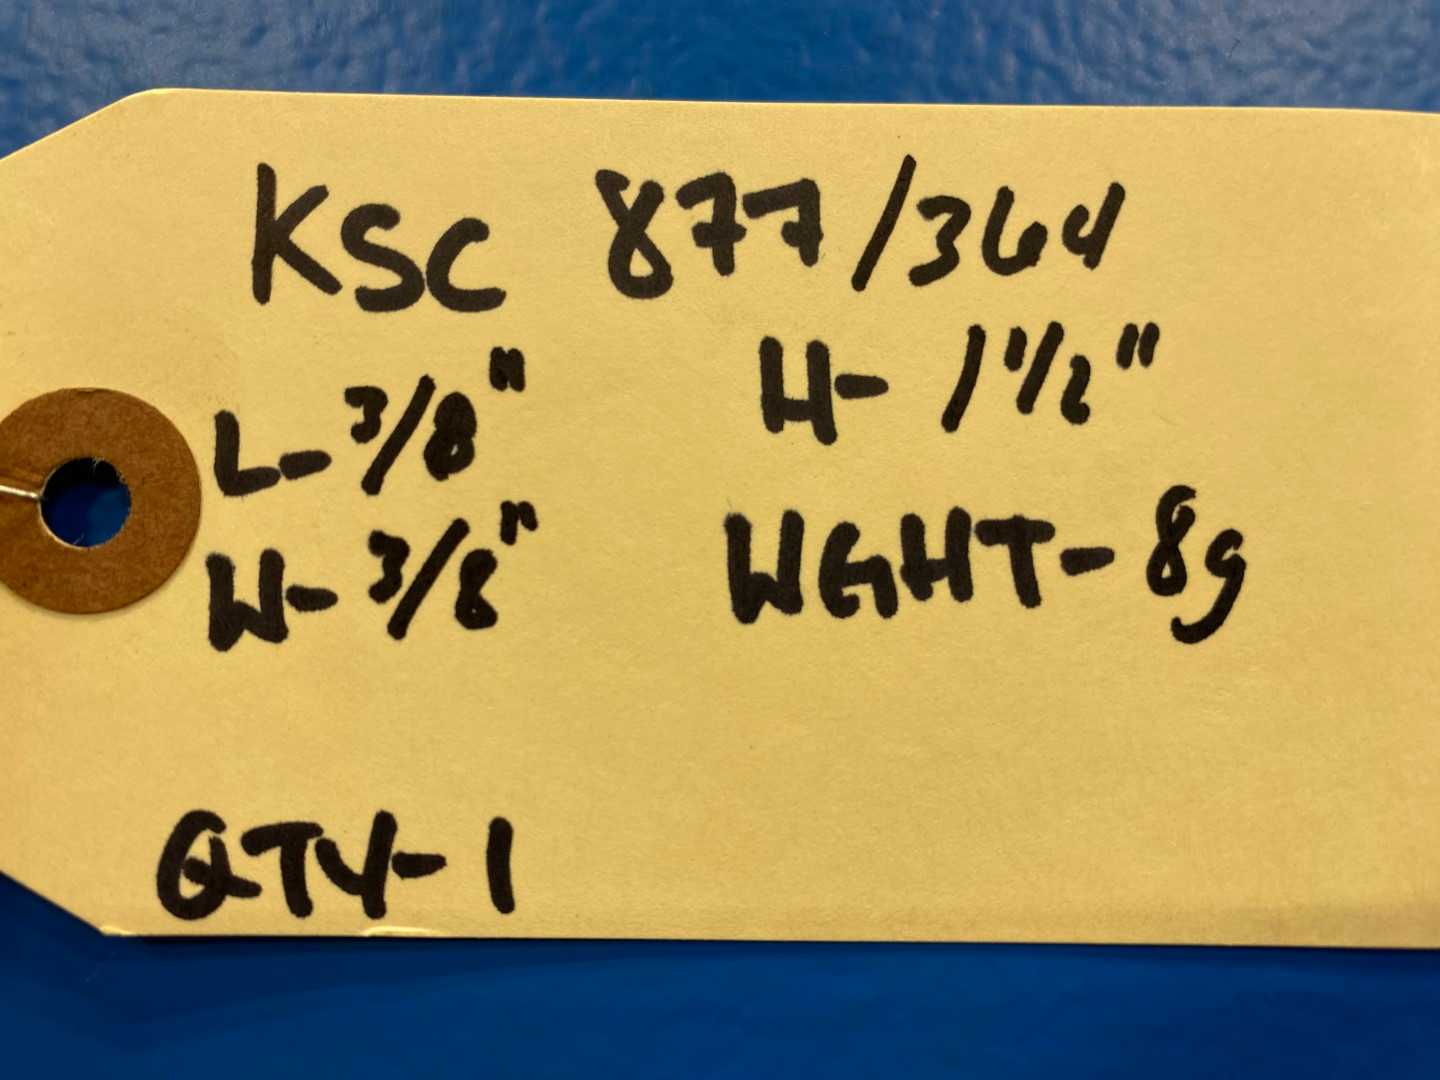 KSC 877/364
L-3/8" H-1 1/2"
W-3/8" WGHT-8g
QTY-1